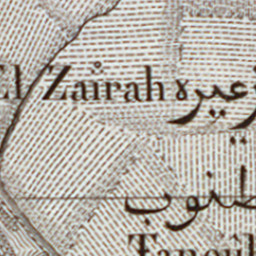 El Zaïrah زعيره
طنوب
Tanoub